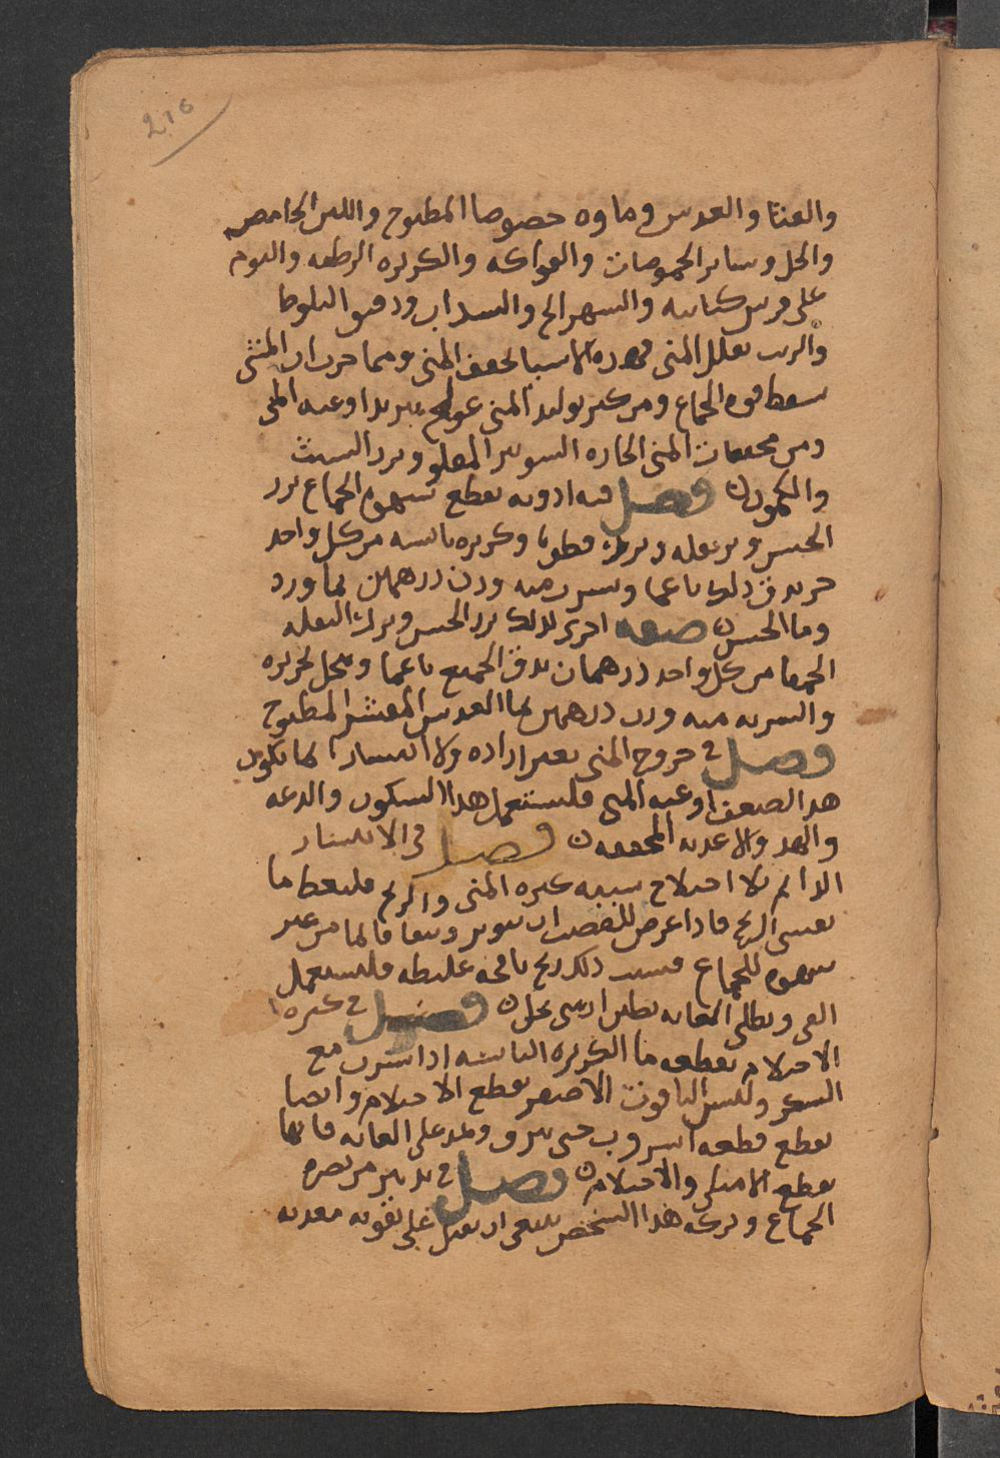 216
والقثا والعدس وماوه خصوصا المطبوخ واللبن الحامض
والخل وساير الحموضات والفواكه والكزبره الرطبه والنوم
على فرش كتانيه والشهدانج والسداب ودقيق البلوط
يقلل المنى فهذه الاشيا تجفف المنى ومما جرب ان المشى
يسقط قوه الجماع ومن كثر توليد المنى عولج بتبريد اوعيه المنى
ومن مجففات المنى الحاره الشونيز المقلو وبزر الشبث
والكمون فصل فيه ادويه تقطع شهوة الجماع بزر
الخس وبزر بقله وبزر قطونا وكزبره يابسه من كل واحد
جزء يدق ذلك ناعما ويشرب منه وزن درهمين بماورد
وما الخس صفه اخرى لذلك بزر الخس وبزر البقله
الحمقا من كل واحد درهمان يدق الجميع ناعما وينخل بحريره
والشربه منه وزن درهمين بما العدس المقشر المطبوخ
فصل فى خروج المنى بغير اراده ولا انتشار انما يكون
هذا لضعف اوعيه المنى فليستعمل هذا السكون والدعه
والاغذيه المجففه فصل فى الانتشار
الدايم بلا احتلام سببه كثره المنى والريح فليعط ما
يفشى الريح فاذا عرض للقضيب ان يتوتر ويبقا قائما من غير
شهوه للجماع فسبب ذلك ريح نافخه غليظه فليستعمل
القى ويطلى العانه بطين ارمنى بخل فصل فى كثره
الاحتلام يقطعه ما الكزبره اليابسه اذا شرب مع
السكر ولبس الياقوت الاصفر يقطع الاحتلام وايضا
يقطع قطعه اسرب حتى ترق وتمد على العانه فانها
تقطع الامنا والاحتلام فصل فى تدبير من يضره
الجماع وتركه هذا الشخص ينبغى ان يقبل على تقويه معدته